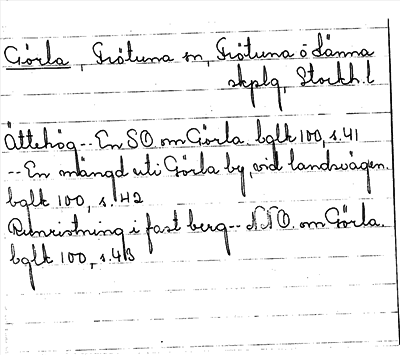 Görla, Frötuna sn, Frötuna o Länna
skplg, Stockh. l
Ättehög -- En SO. om Görla. bglt 100, s. 41
-- En mängd uti Görla by, vid landsvägen.
bglt 100, s. 42
Runristning i fast berg -- NNO. om Görla.
bglt 100, s. 43